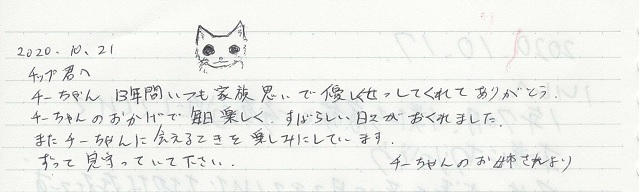 2020.10.21
チップ君へ
チーちゃん 13年間いつも家族思いで優しくせっしてくれてありがとう.
チーちゃんのおかげで毎日楽しく.すばらしい日々がおくれました.
またチーちゃんに会えるときを楽しみにしています.
ずっと見守っていて下さい.
チーちゃんのお姉さんより